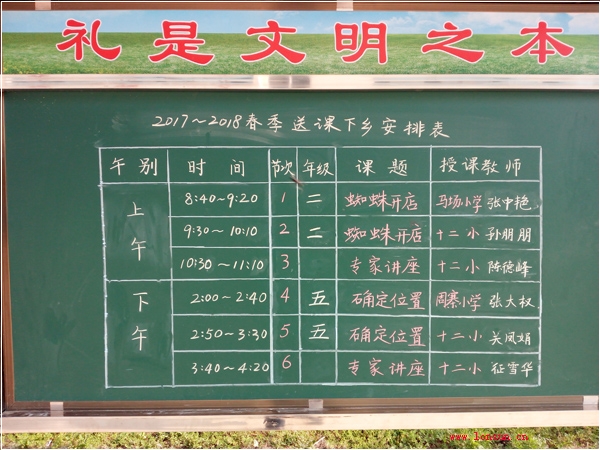 礼是文明之本
2017～2018春季送课下乡安排表
午别 时间 节次 年级 课题 授课教师
上午 8:40～9:20 1 二 蜘蛛开店 马场小学 张中艳
9:30～10:10 2 二 蜘蛛开店 十二小 孙朋朋
10:30～11:10 3 专家讲座 十二小 陈德峰
下午 2:00～2:40 4 五 确定位置 周寨小学 张大权
2:50～3:30 5 五 确定位置 十二小 关凤娟
3:40～4:20 6 专家讲座 十二小 征雪华